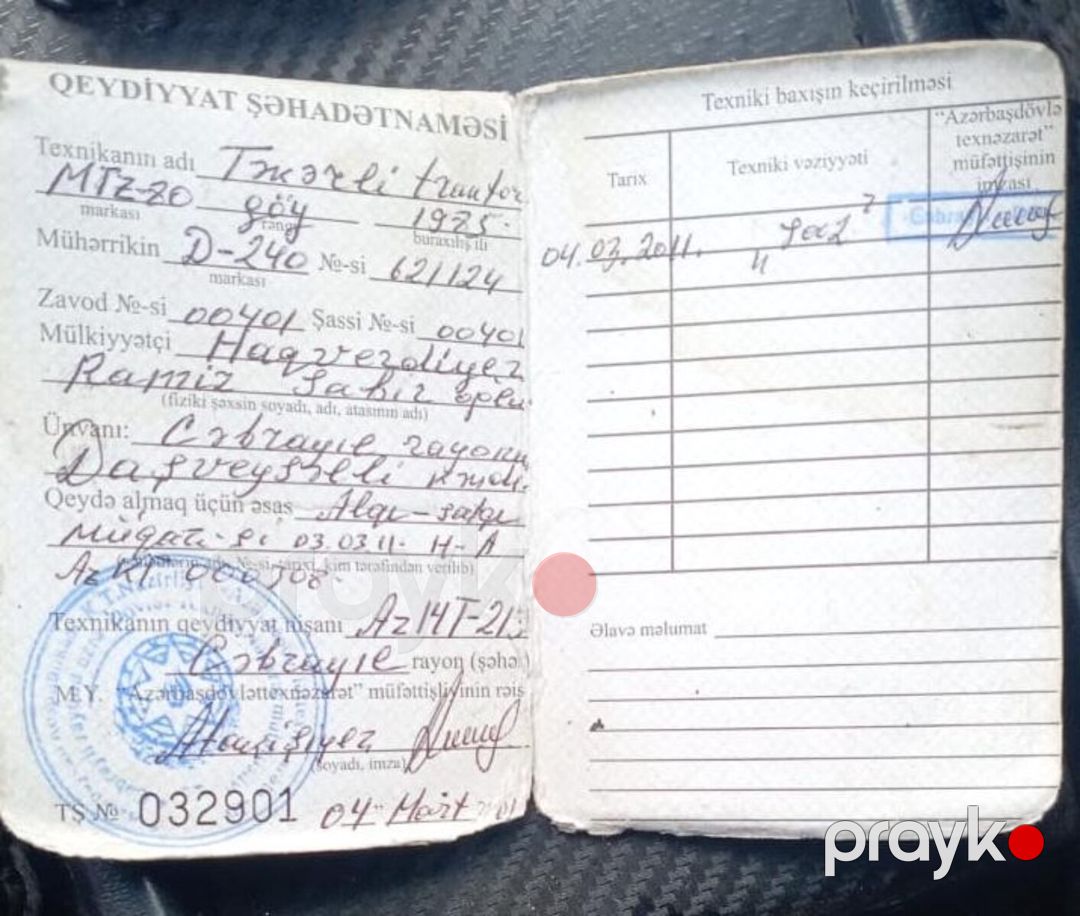 QEYDİYYAT ŞƏHADƏTNAMƏSİ
Texnikanın adı Təkərli traktor
MTZ-80 göy 1985.
markası rəngi buraxılış ili
Mühərrikin D-240 №-si 621124
markası
Zavod №-si 00401 Şassi №-si 00401
Mülkiyyətçi Haqverdiyev
Ramiz Sabir oğlu
(fiziki şəxsin soyadı, adı, atasının adı)
Ünvanı: Cəbrayıl rayonu
Daşveysəlli kəndi
Qeydə almaq üçün əsas Alqı-satqı
03.03.11. H-A
tarixi, kim tərəfindən verilib)
Texnikanın qeydiyyat nişanı Az 14T-21
Cəbrayıl rayon (şəhə
M.Y. "Azərbaşdövləttexnəzarət" müfəttişliyinin rəis
(soyadı, imza)
TŞ № 032901 04 Mart
Texniki baxışın keçirilməsi
Tarix
Texniki vəziyyəti
"Azərbaşdövlə
texnəzarət"
müfəttişinin
imzası
04.03.2011.
Əlavə məlumat
prayk
prayk